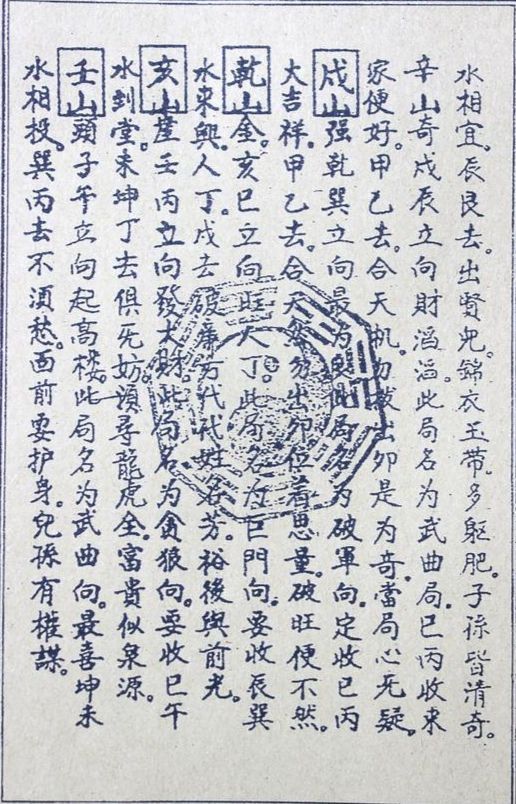 水相宜。辰艮去。出賢兒。錦衣玉带。多躯肥。子孫皆清奇。
辛山奇戍辰立向財滔滔。此局名为武曲局。巳丙收来
家便好。甲乙去。合天机。勿放出卯是为奇。當局心无疑。
戍山强乾巽立向最为良此局名为破軍向。定收巳丙
大吉祥。甲乙去。合天然勿出卯位着思量。破旺便不然。
乾山金。亥巳立向旺人丁。此局名为巨門向。要收辰巽
水来興。人丁。戍去破廉方代代姓名芳。裕後與前光。
亥山崖壬丙立向發大財。此局名为貪狼向。要收巳午
水到堂。未坤丁去俱无妨。須尋龍虎全。富貴似泉源。
壬山頭子午立向起高樓。此局名为武曲向。最喜坤未
水相投。巽丙去不須愁。面前要护身。兒孫有權謀。